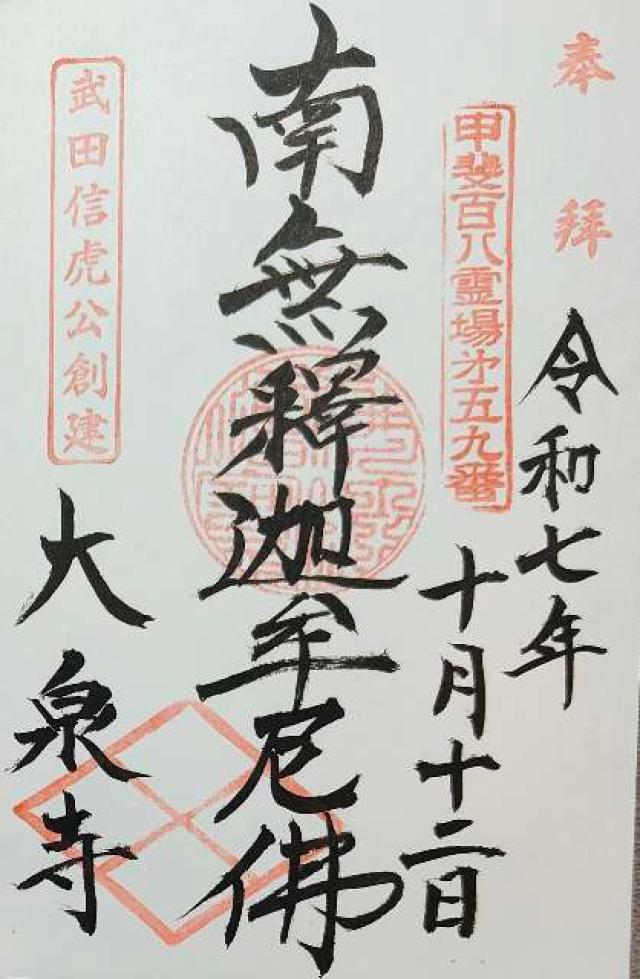 奉拜
甲斐百八霊場㐧五九番
令和七年
十月十二日
南無釋迦牟尼佛
武田信虎公創建
大泉寺